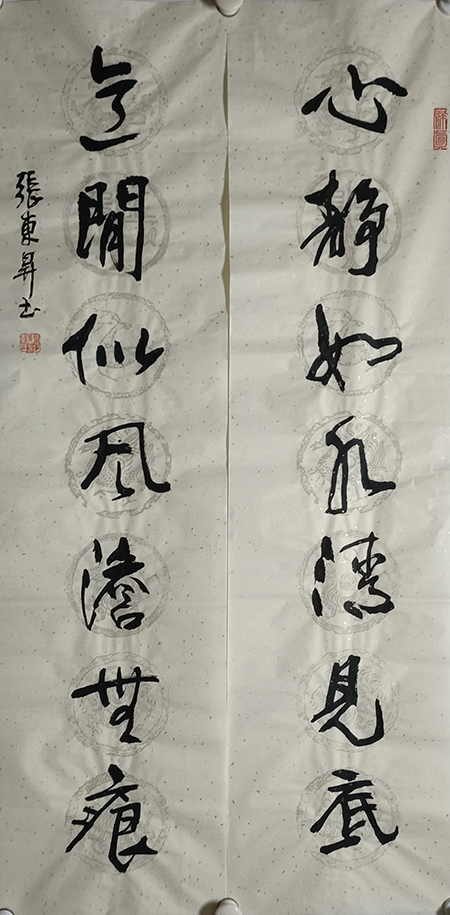 心靜如水清見底
意閒似風澹無痕
張東昇书